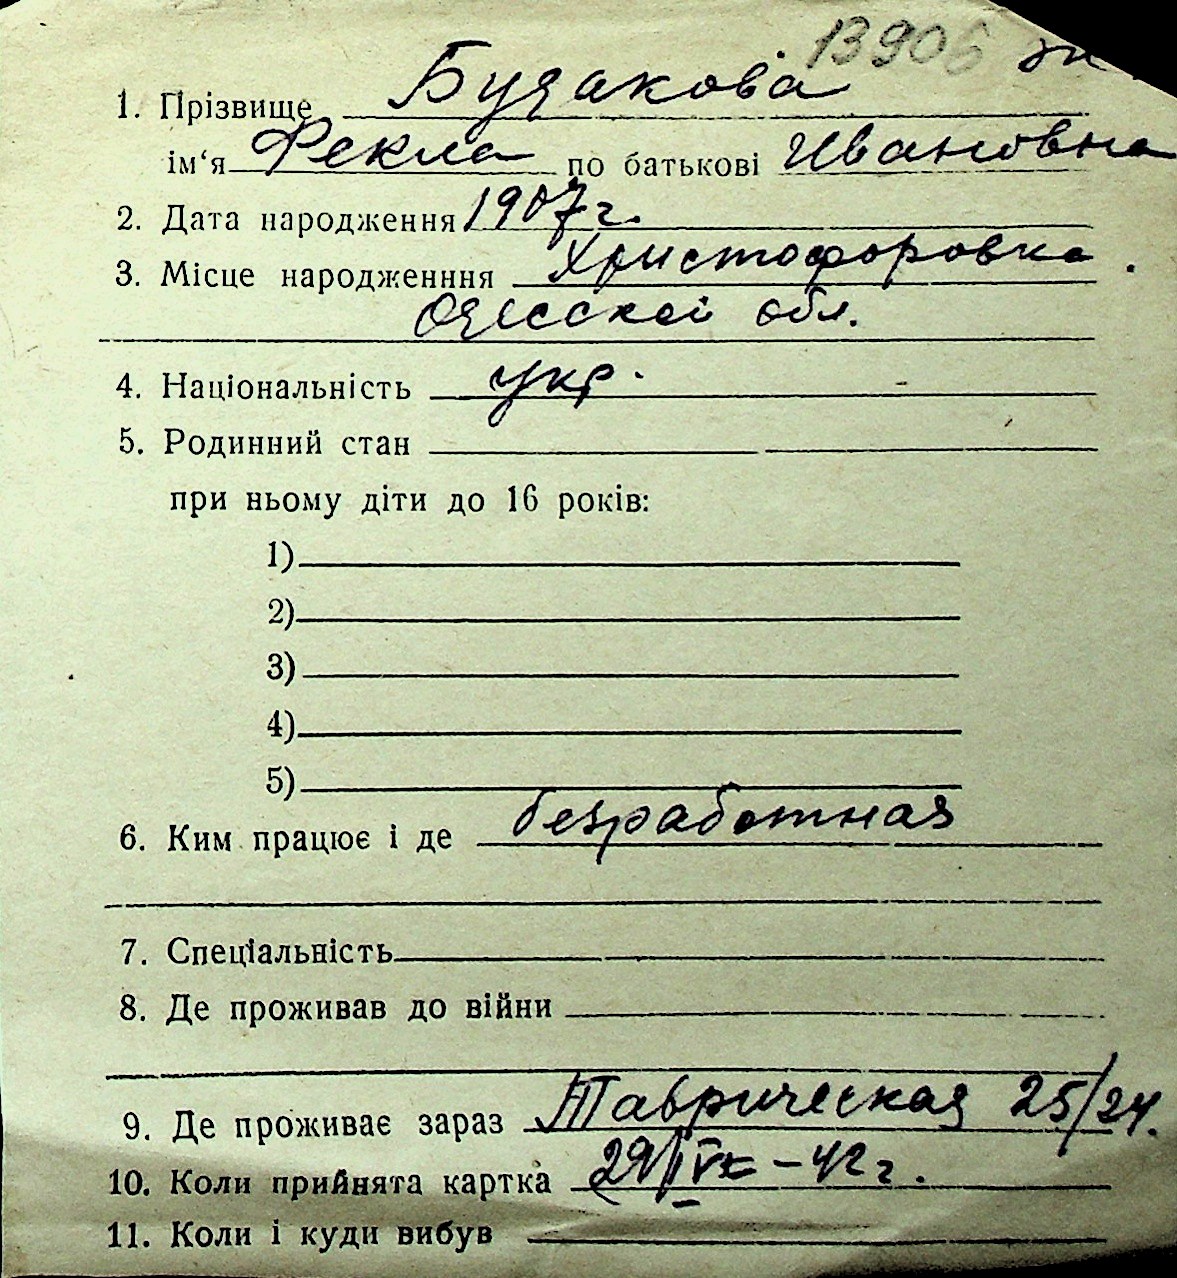 13906
1. Прізвище Будакова
ім‘я Фекла по батькові Ивановна
2. Дата народження 1907 г.
3. Місце народженння Христофоровка
Одесской обл.
4. Національність укр.
5. Родинний стан
при ньому діти до 16 років:
1)
2)
3)
4)
5)
6. Ким працює і де безработная
7. Спеціальність
8. Де проживав до війни
9. Де проживає зараз Таврическая 25/24.
10. Коли прийнята картка 29/ -42 г.
11. Коли і куди вибув